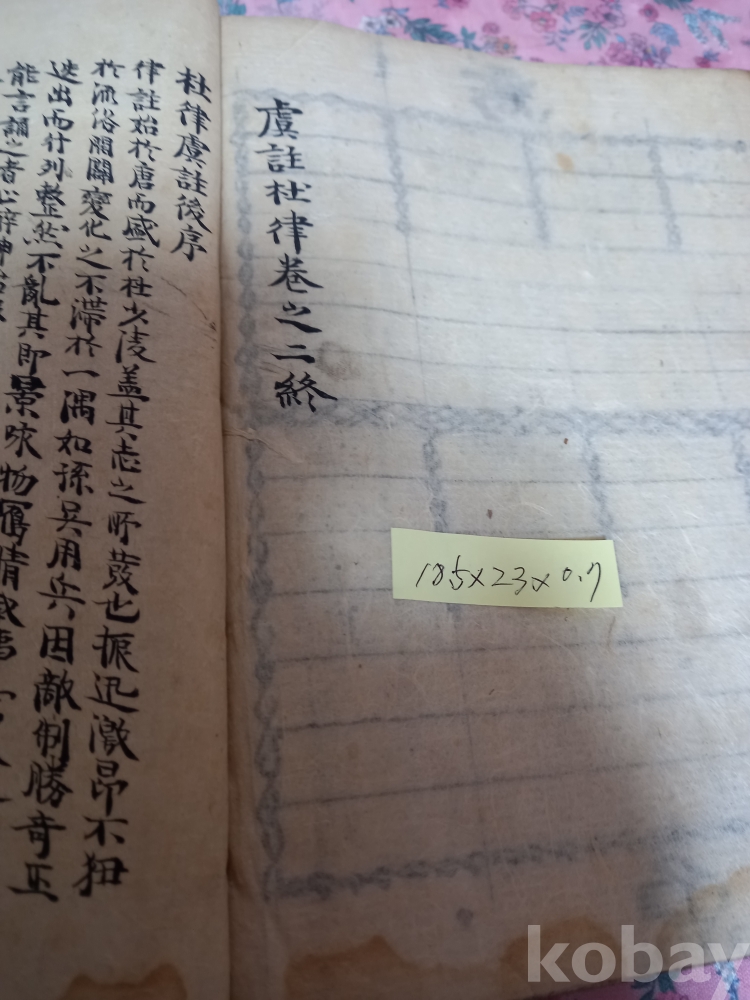 虞註杜律卷之二終
杜律虞註後序
律註始於唐而盛於杜少陵盖其志之所發也振迅激昂不狃
於流俗開闔變化之不滯於一隅如孫吳用兵因敵制勝奇正
迭出而什列整然不亂其即景咏物寫情
能言謂之者心醉神
18.5×23×0.7
kobay